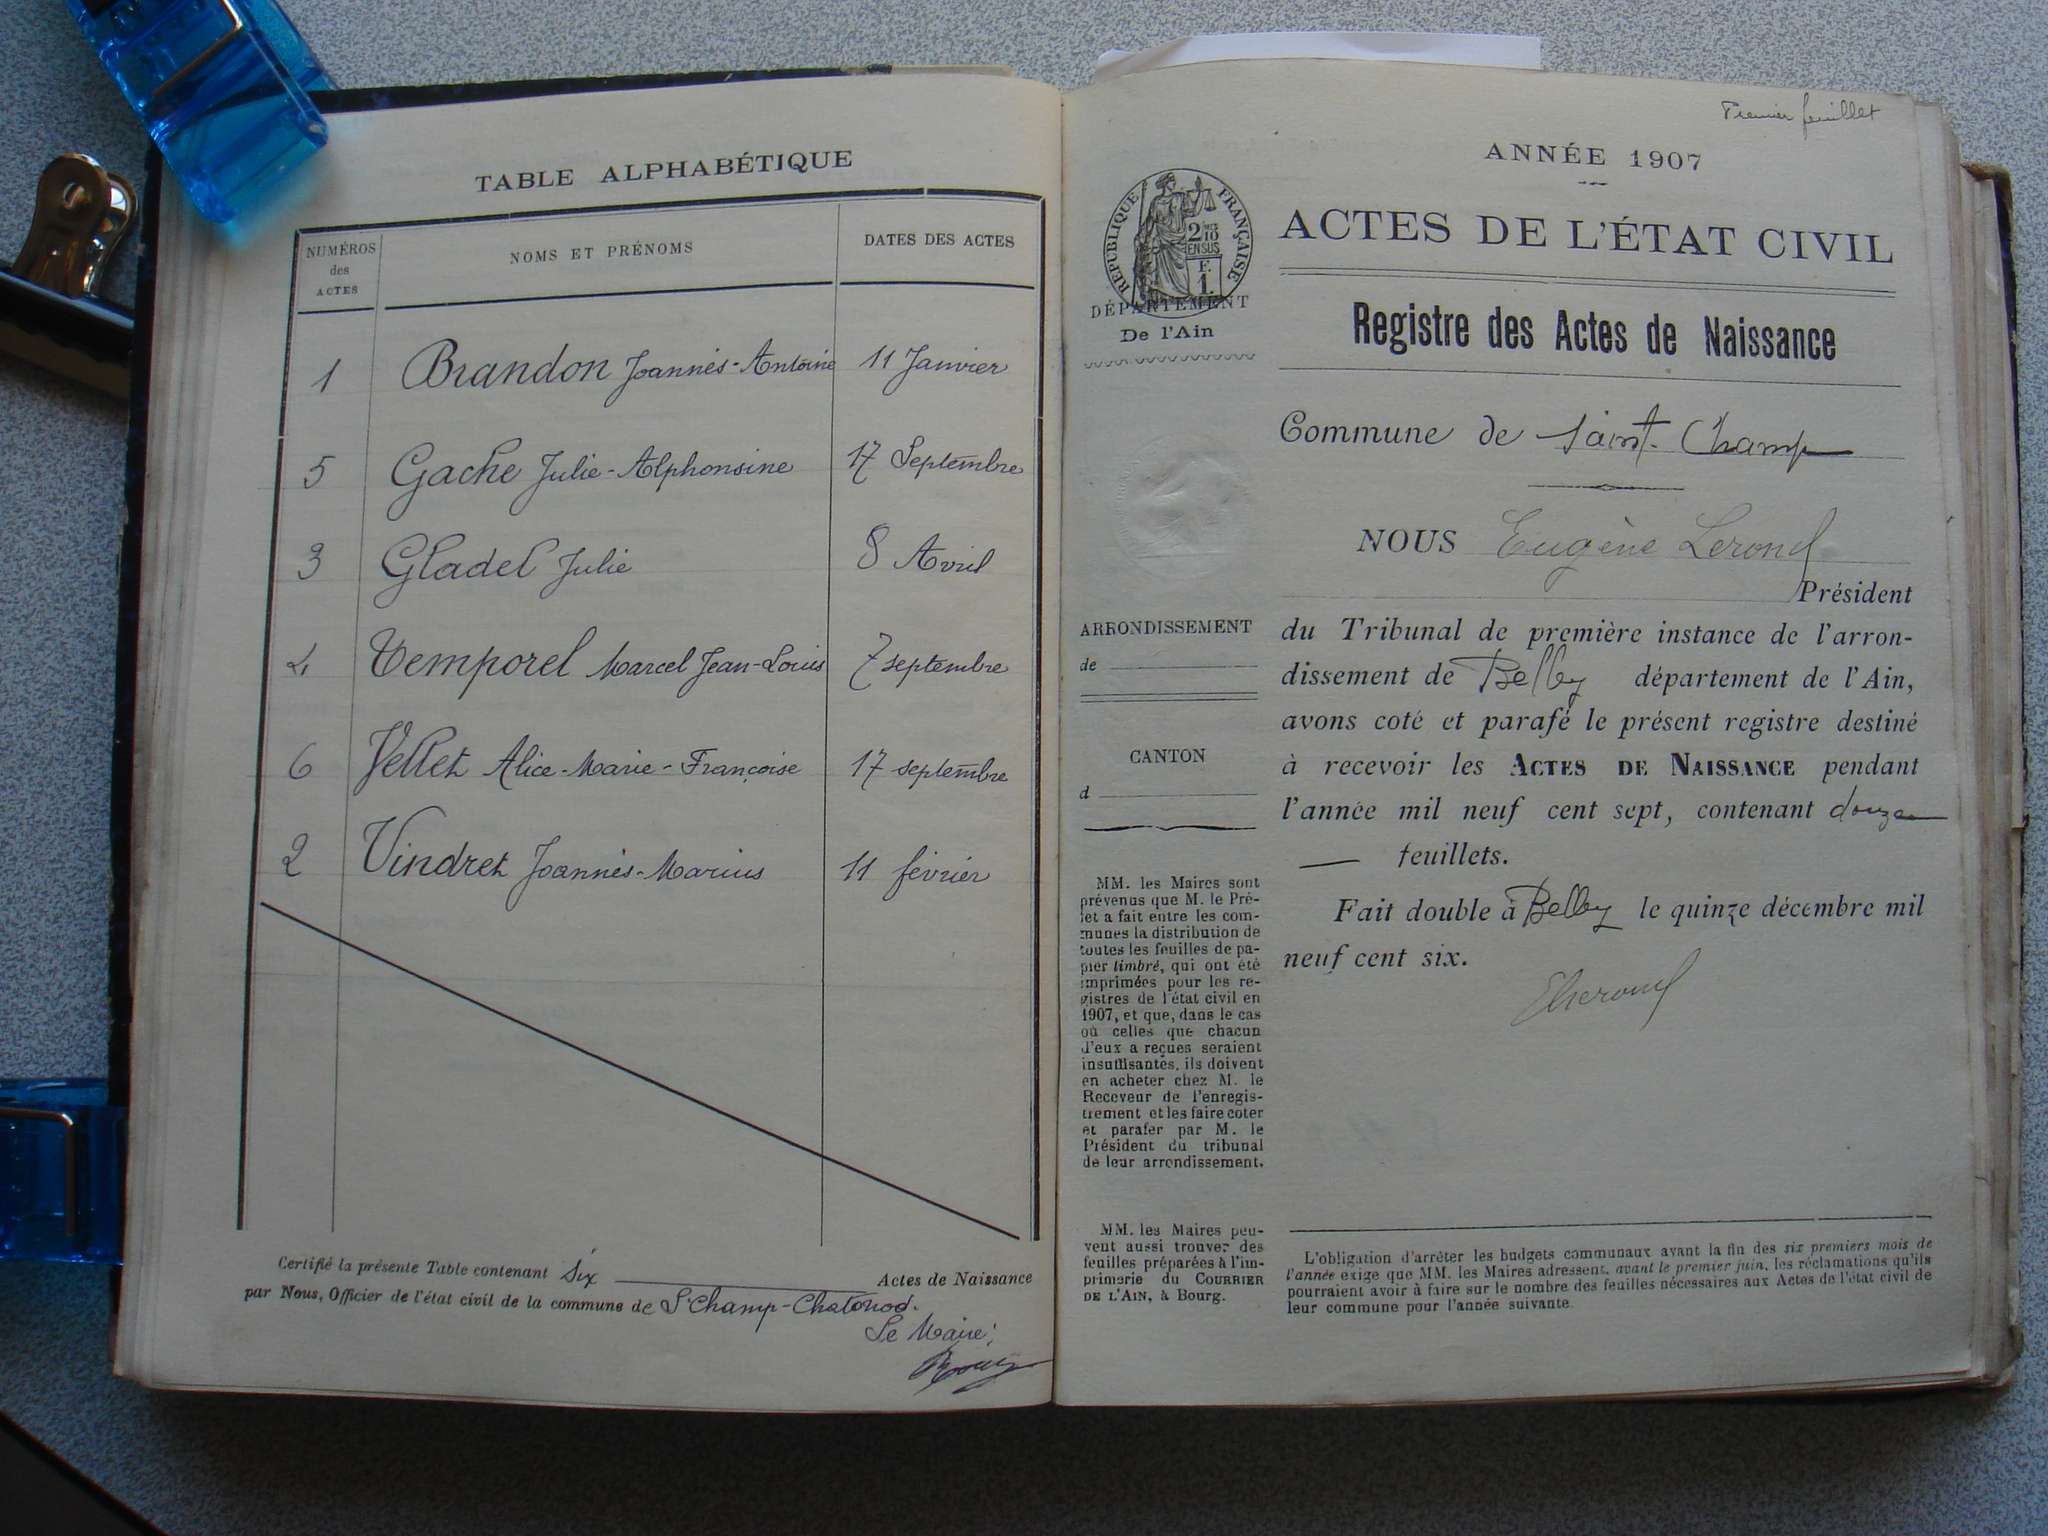 TABLE ALPHABÉTIQUE
NUMÉROS des ACTES
NOMS ET PRÉNOMS
DATES DES ACTES
1 Brandon Joannès-Antoine 11 Janvier
5 Gache Julie-Alphonsine 17 Septembre
3 Gladel Julie 8 Avril
4 Temporel Marcel Jean-Louis 7 septembre
6 Vellet Alice-Marie-Françoise 17 septembre
2 Vindret Joannès-Marius 11 février
Certifié la présente Table contenant six Actes de Naissance
par Nous, Officier de l'état civil de la commune de St Champ-Chatonod.
Le Maire;
Premier feuillet
ANNÉE 1907
ACTES DE L'ÉTAT CIVIL
Registre des Actes de Naissance
Commune de Saint-Champ
NOUS Eugène Lerond
Président
du Tribunal de première instance de l'arron-
dissement de Belley département de l'Ain,
avons coté et parafé le présent registre destiné
à recevoir les ACTES DE NAISSANCE pendant
l'année mil neuf cent sept, contenant douze
feuillets.
Fait double à Belley le quinze décembre mil
neuf cent six.
L'obligation d'arrêter les budgets communaux avant la fin des six premiers mois de
l'année exige que MM. les Maires adressent, avant le premier juin, les réclamations qu'ils
pourraient avoir à faire sur le nombre des feuilles nécessaires aux Actes de l'état civil de
leur commune pour l'année suivante.
RÉPUBLIQUE FRANÇAISE
2 10 EN SUS
F. 1.
DÉPARTEMENT
De l'Ain
ARRONDISSEMENT
de
CANTON
d
MM. les Maires sont
prévenus que M. le Pré-
fet a fait entre les com-
munes la distribution de
toutes les feuilles de pa-
pier timbré, qui ont été
imprimées pour les re-
gistres de l'état civil en
1907, et que, dans le cas
où celles que chacun
d'eux a reçues seraient
insuffisantes, ils doivent
en acheter chez M. le
Receveur de l'enregis-
trement et les faire coter
et parafer par M. le
Président du tribunal
de leur arrondissement.
MM. les Maires peu-
vent aussi trouver des
feuilles préparées à l'im-
primerie du COURRIER
DE L'AIN, à Bourg.